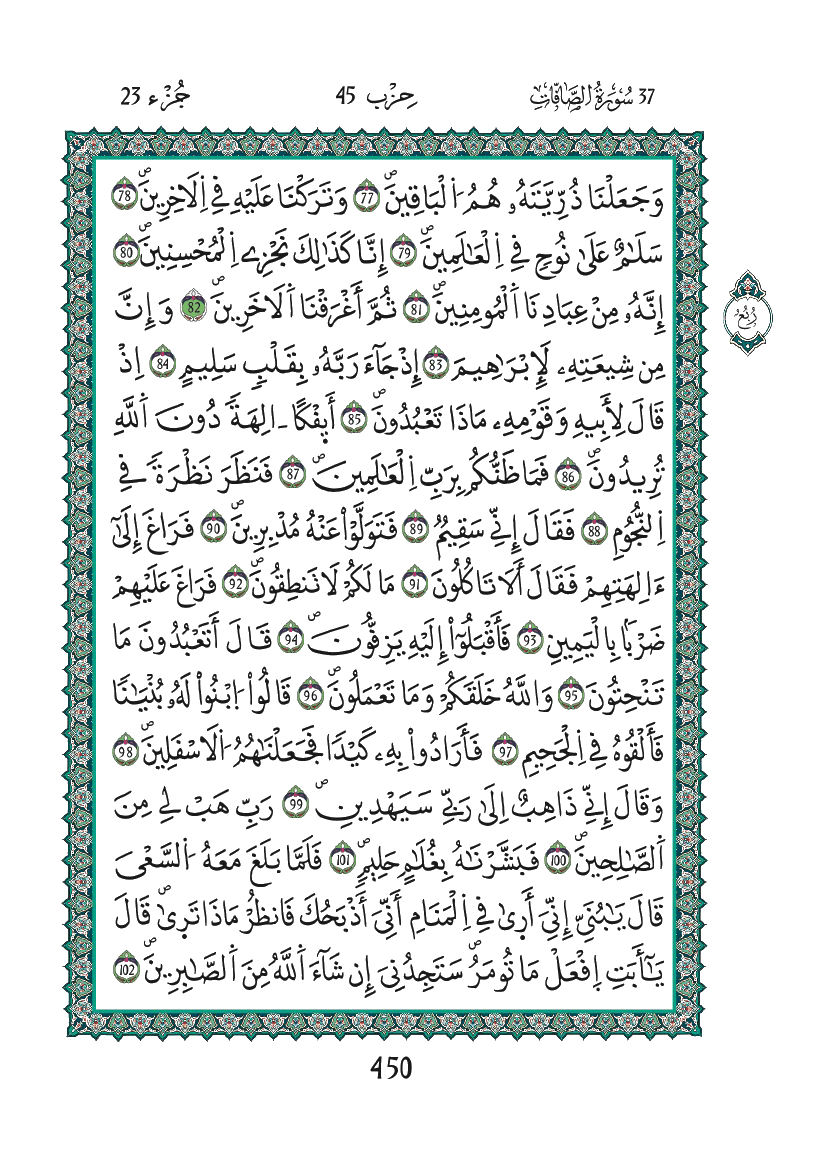 37 سُورَةُ الصَّافَّاتِ حِزْب 45 جُزْء 23
وَجَعَلْنَا ذُرِّيَّتَهُۥ هُمُ اُ۬لْبَاقِينَۖ 77 وَتَرَكْنَا عَلَيْهِ فِي اِ۬لَاخِرِينَۖ 78
سَلَٰمٌ عَلَىٰ نُوحٖ فِي اِ۬لْعَٰلَمِينَۖ 79 إِنَّا كَذَٰلِكَ نَجْزِے اِ۬لْمُحْسِنِينَۖ 80
إِنَّهُۥ مِنْ عِبَادِنَا اَ۬لْمُومِنِينَۖ 81 ثُمَّ أَغْرَقْنَا اَ۬لَاخَرِينَۖ 82 وَإِنَّ
رُبُع
مِن شِيعَتِهِۦ لَإِبْرَٰهِيمَ 83 إِذْ جَآءَ رَبَّهُۥ بِقَلْبٖ سَلِيمٍ 84 اِذْ
قَالَ لِأَبِيهِ وَقَوْمِهِۦ مَاذَا تَعْبُدُونَۖ 85 أَئِفْكاً ـ اٰلِهَةٗ دُونَ اَ۬للَّهِ
تُرِيدُونَۖ 86 فَمَا ظَنُّكُم بِرَبِّ اِ۬لْعَٰلَمِينَۖ 87 فَنَظَرَ نَظْرَةٗ فِي
اِ۬لنُّجُومِ 88 فَقَالَ إِنِّي سَقِيمٞ 89 فَتَوَلَّوْاْ عَنْهُ مُدْبِرِينَۖ 90 فَرَاغَ إِلَىٰٓ
ءَالِهَتِهِمْ فَقَالَ أَلَا تَاكُلُونَ 91 مَا لَكُمْ لَا تَنطِقُونَۖ 92 فَرَاغَ عَلَيْهِمْ
ضَرْباَۢ بِالْيَمِينِ 93 فَأَقْبَلُوٓاْ إِلَيْهِ يَزِفُّونَۖ 94 قَالَ أَتَعْبُدُونَ مَا
تَنْحِتُونَ 95 وَاللَّهُ خَلَقَكُمْ وَمَا تَعْمَلُونَۖ 96 قَالُواْ اُ۪بْنُواْ لَهُۥ بُنْيَٰناٗ
فَأَلْقُوهُ فِي اِ۬لْجَحِيمِ 97 فَأَرَادُواْ بِهِۦ كَيْداٗ فَجَعَلْنَٰهُمُ اُ۬لَاسْفَلِينَۖ 98
وَقَالَ إِنِّي ذَاهِبٌ اِلَىٰ رَبِّي سَيَهْدِينِۖ 99 رَبِّ هَبْ لِي مِنَ
اَ۬لصَّٰلِحِينَۖ 100 فَبَشَّرْنَٰهُ بِغُلَٰمٍ حَلِيمٖۖ 101 فَلَمَّا بَلَغَ مَعَهُ اُ۬لسَّعْيَ
قَالَ يَٰبُنَيِّ إِنِّيَ أَر۪ىٰ فِي اِ۬لْمَنَامِ أَنِّيَ أَذْبَحُكَ فَانظُرْ مَاذَا تَر۪ىٰۖ قَالَ
يَٰٓأَبَتِ اِ۪فْعَلْ مَا تُومَرُۖ سَتَجِدُنِيَ إِن شَآءَ اَ۬للَّهُ مِنَ اَ۬لصَّٰبِرِينَۖ 102
450